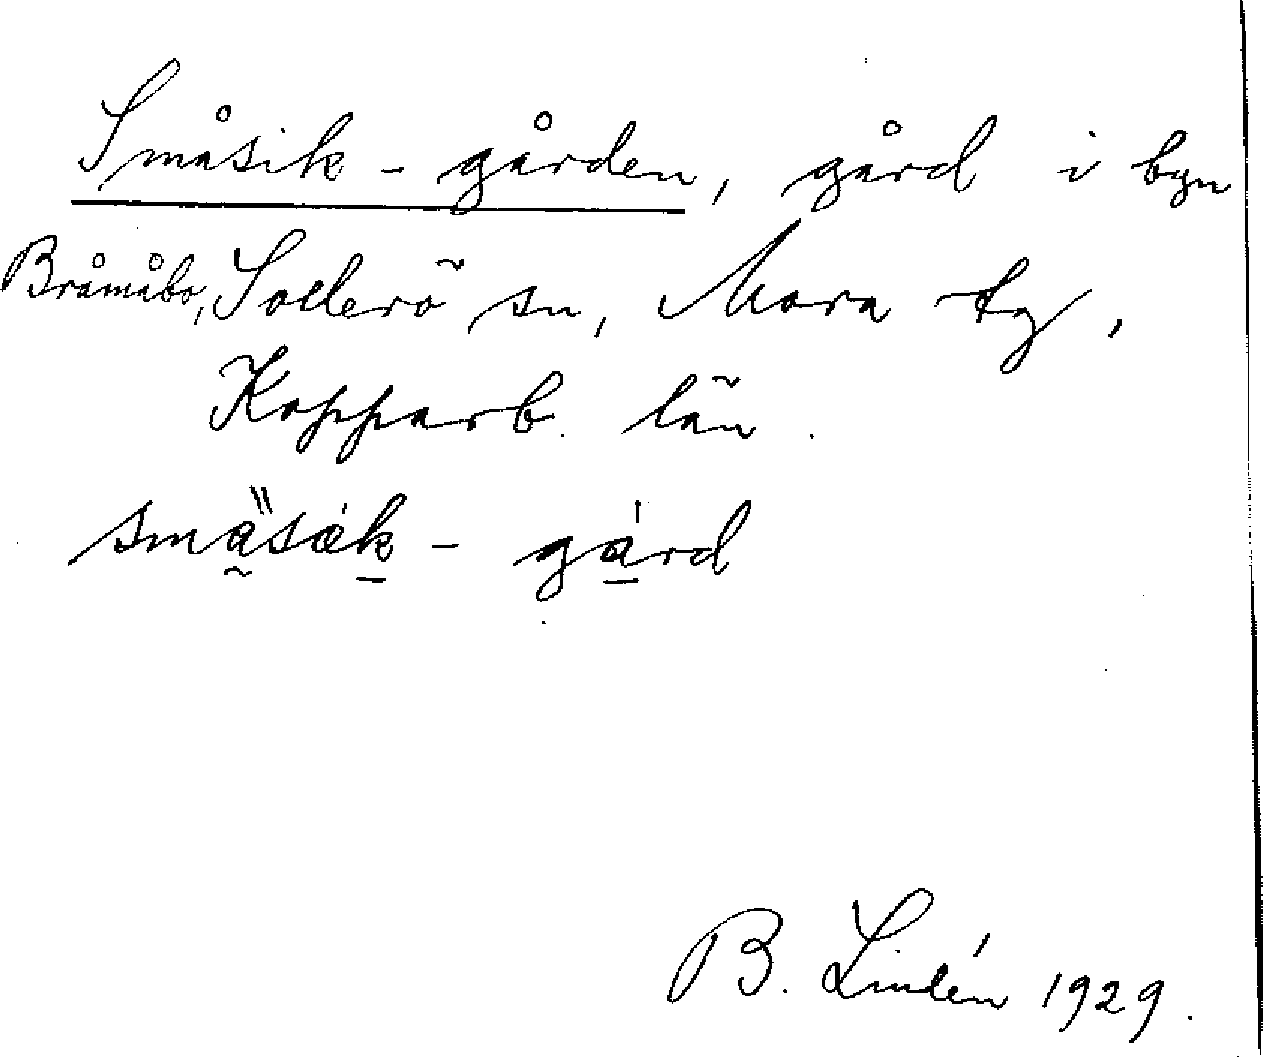 Småsik-gården, gård i byn
Bråmåbo, Sollerö sn, Mora tg,
Kopparb. län.
smasæk-gard
B. Lindén 1929.